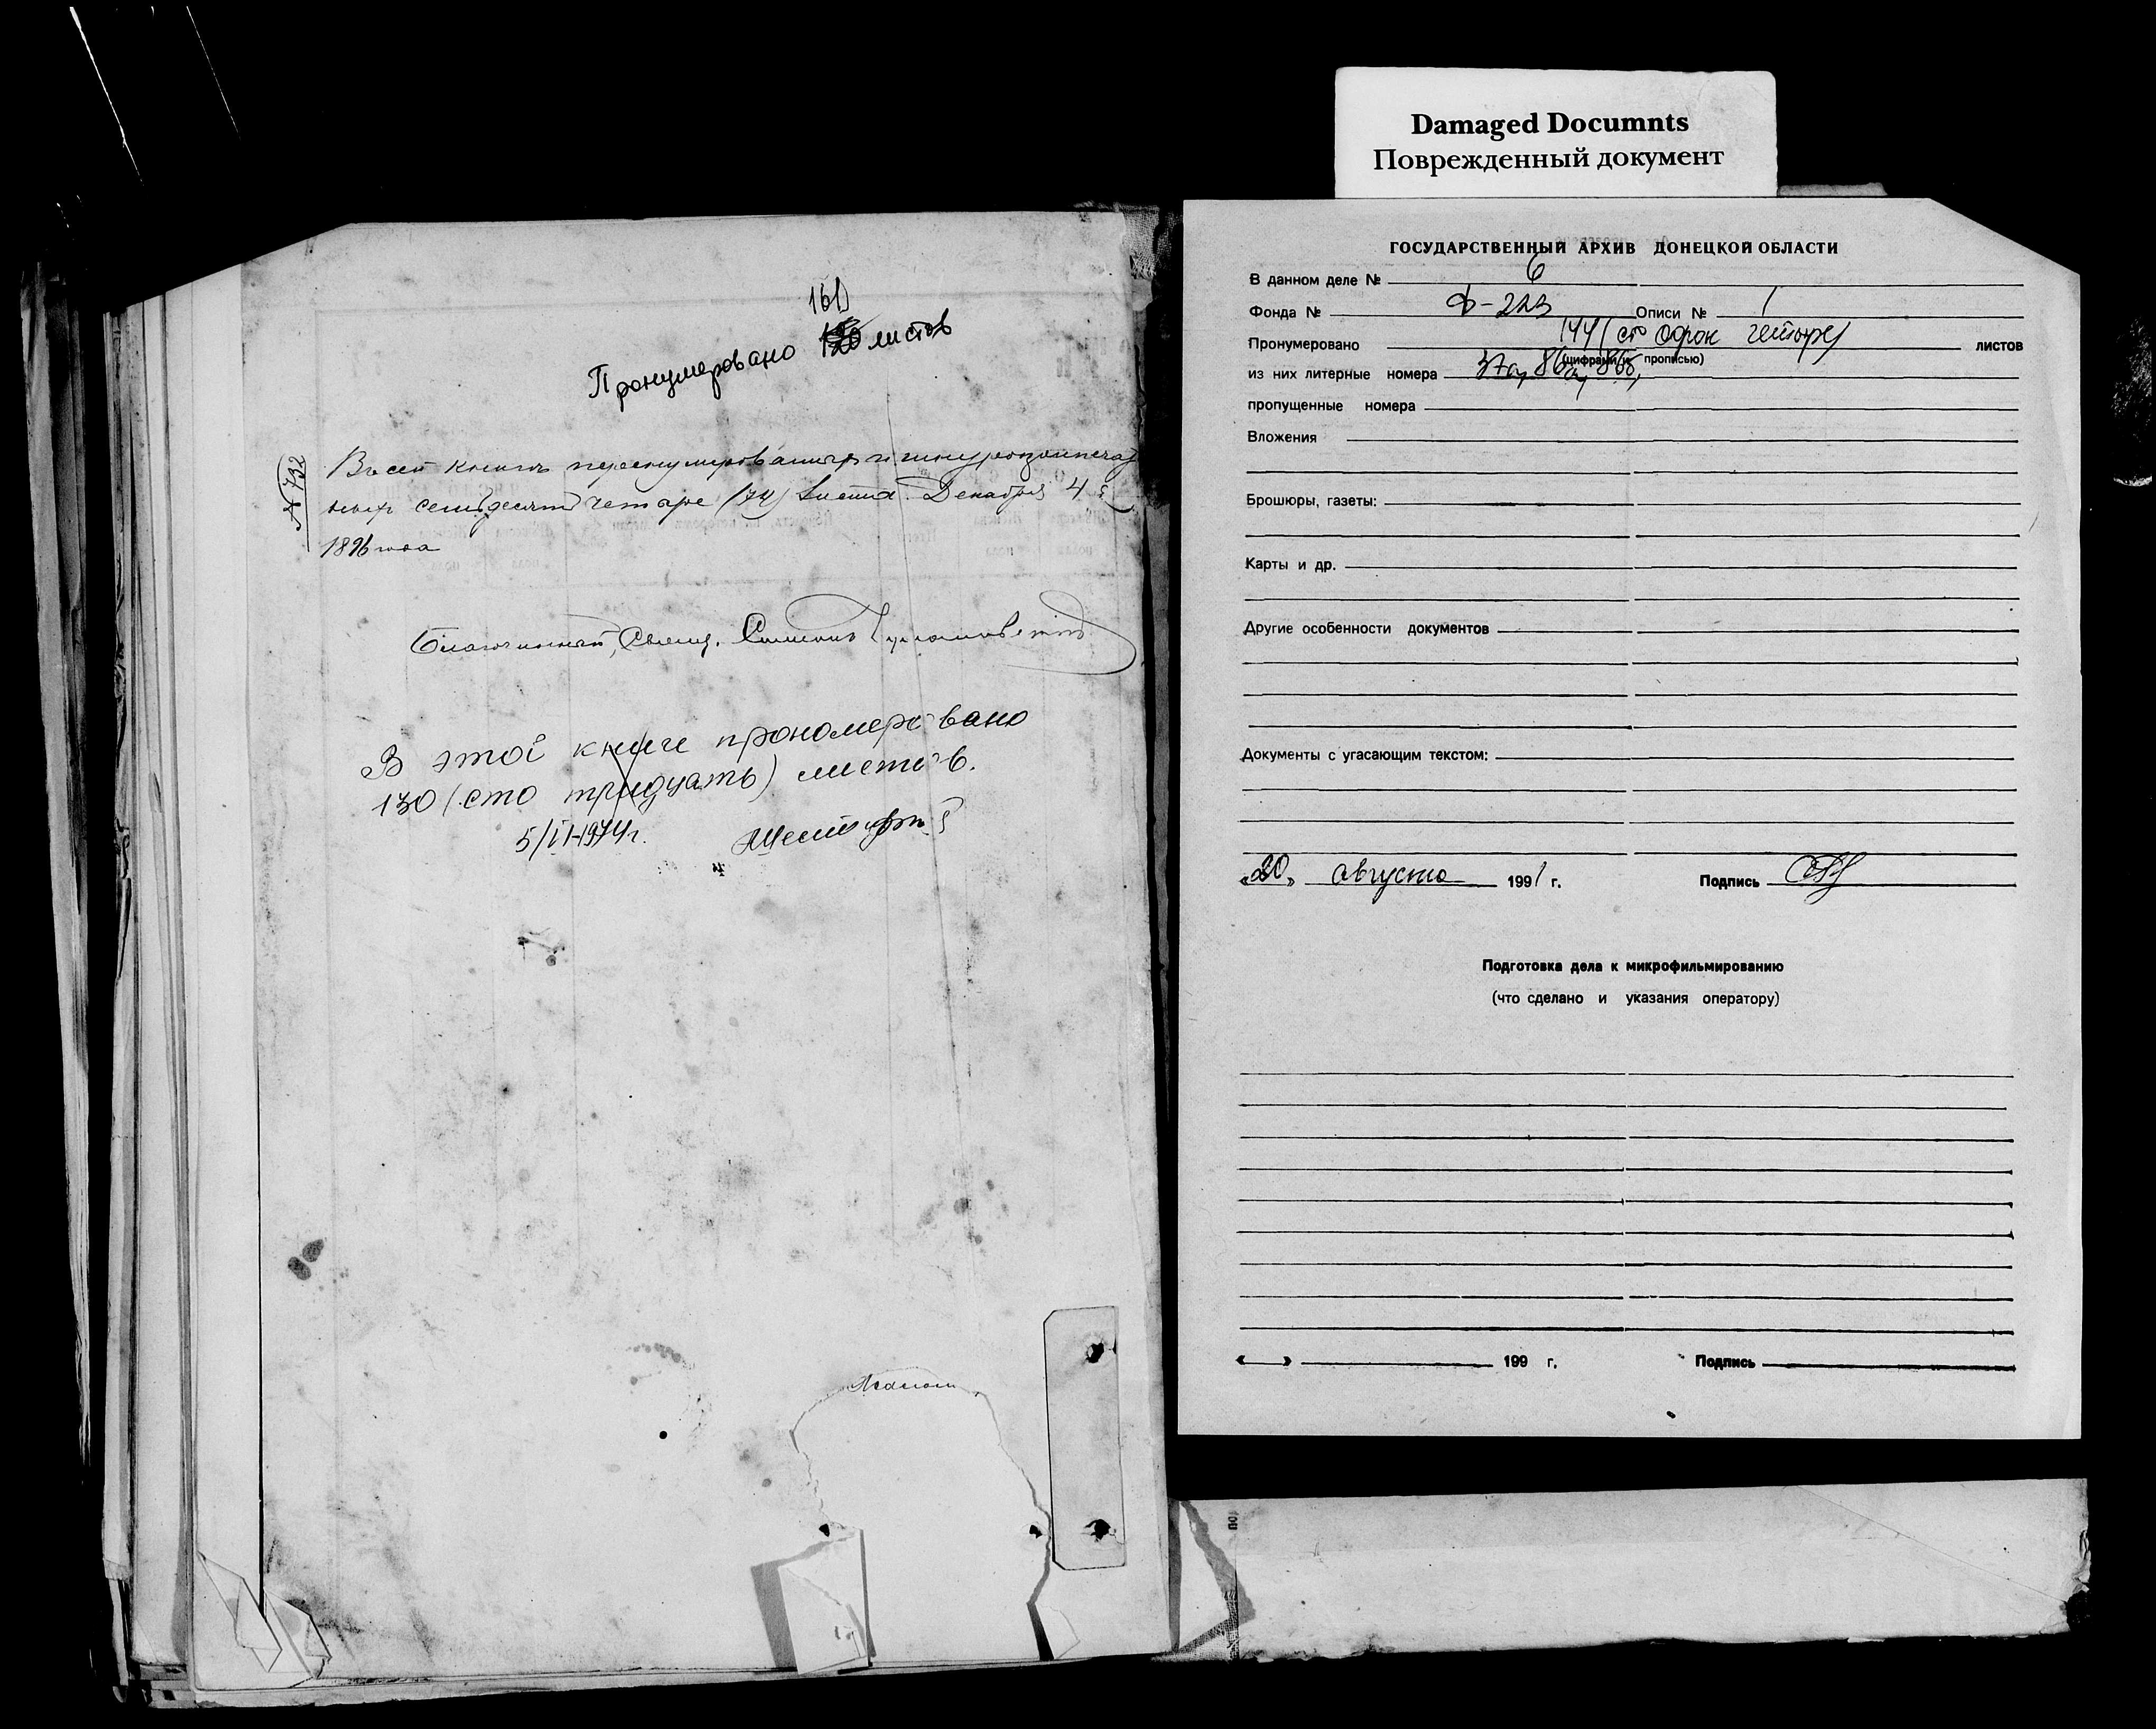 Damaged Documnts
Поврежденный документ
Пронумеровано листов
№ 732
Въ сей книгѣ
семьдесятъ четыре (74) листа. Декабря 4
1896 года
Благочинный, Свящ. Симеонъ
В этой книге прономеровано
130 (сто тридцать) листов.
5/VI-1974г.
ГОСУДАРСТВЕННЫЙ АРХИВ ДОНЕЦКОЙ ОБЛАСТИ
В данном деле № 6
Фонда № Ф-223 Описи № 1
Пронумеровано 144 (сто сорок четыре) листов
(цифрами и прописью)
из них литерные номера 37а, 86а, 86б,
пропущенные номера
Вложения
Брошюры, газеты:
Карты и др.
Другие особенности документов
Документы с угасающим текстом:
«20» августа 1991 г. Подпись
Подготовка дела к микрофильмированию
(что сделано и указания оператору)
« » 199 г. Подпись